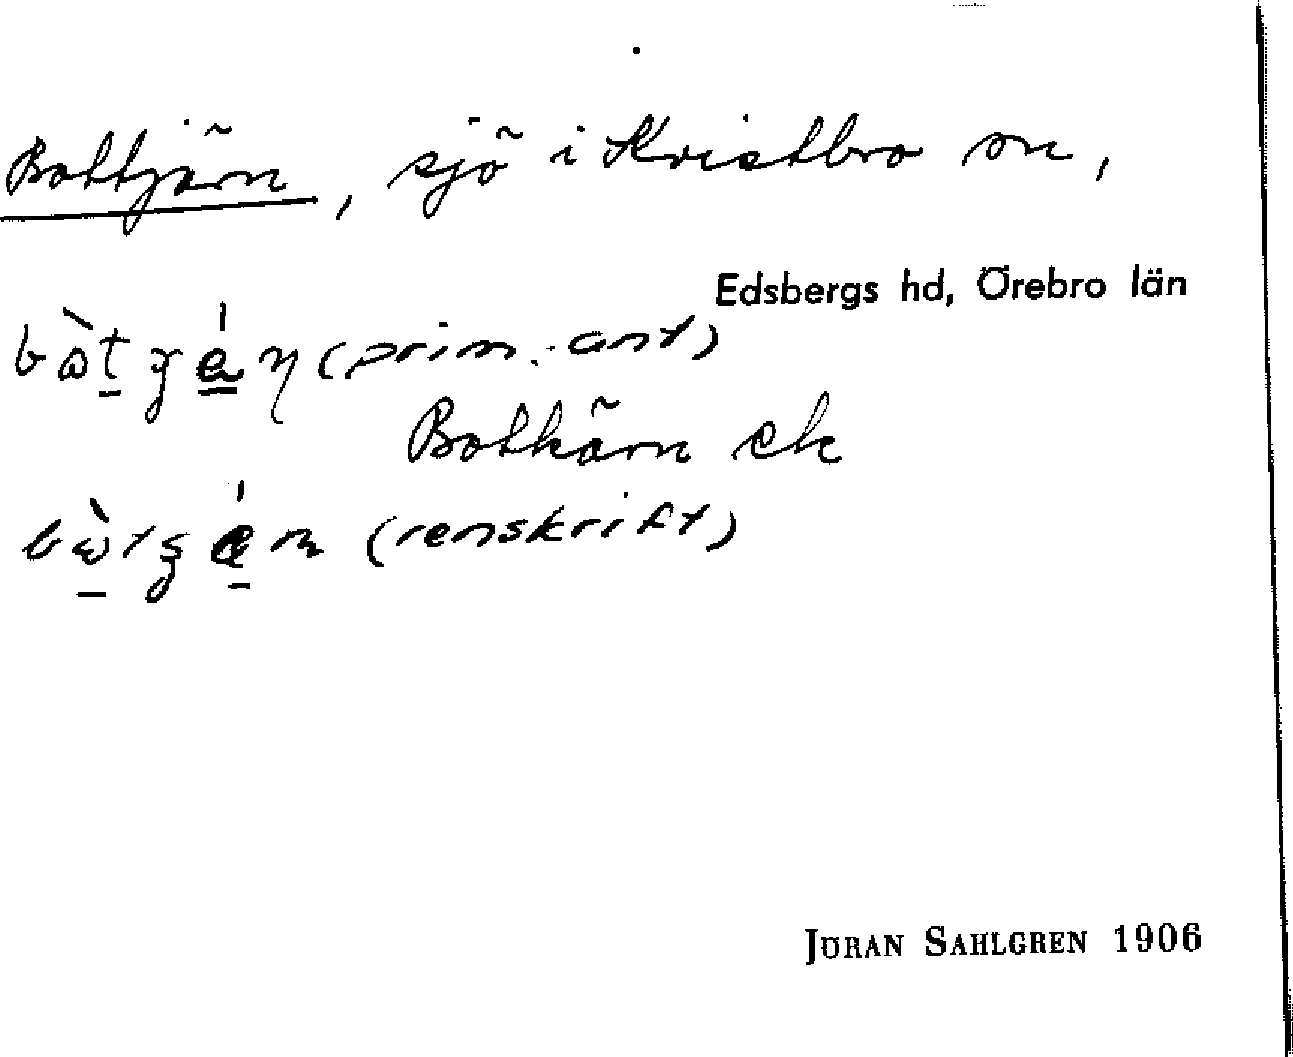 Bottjärn, sjö i Kvistbro sn,
Edsbergs hd, Örebro län
(prim. ant)
Botkärn ek
(renskrift)
JÖRAN SAHLGREN 1906